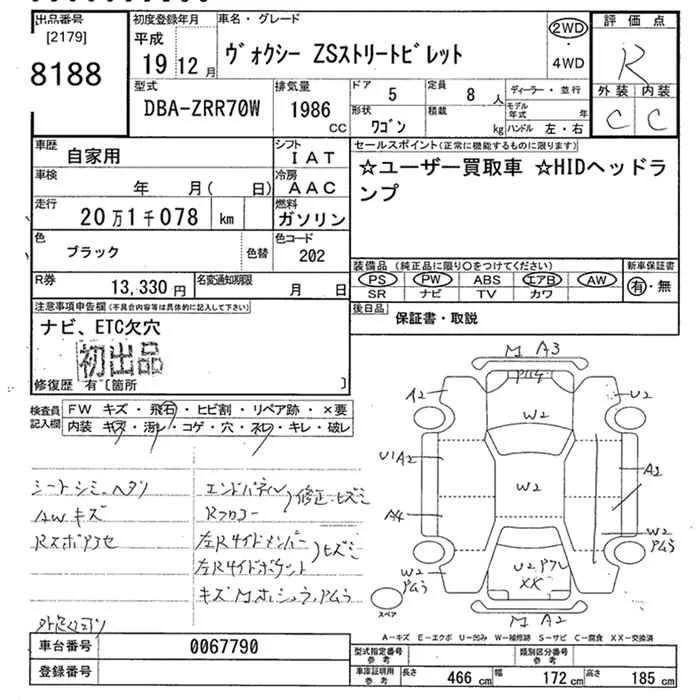 出品番号
[2179]
8188
初度登録年月
平成
19 12 月
車名・グレード
ヴォクシー ZSストリートビレット
2WD
・
4WD
評価点
R
外装 内装
C C
型式
DBA-ZRR70W
排気量
1986
CC
ドア
5
定員
8 人
形状
ワゴン
積載
kg
ディーラー・並行
モデル年式 年
ハンドル 左・右
車歴
自家用
シフト
IAT
車検
年 月( 日)
冷房
AAC
走行
20万1千078 km
燃料
ガソリン
色
ブラック
色替
色コード
202
R券
13,330 円
名変通知期限
月 日
セールスポイント(正常に機能するものに限ります)
☆ユーザー買取車 ☆HIDヘッドラ
ンプ
装備品 (純正品に限り○をつけてください)
PS PW ABS エアB AW
SR ナビ TV カワ
新車保証書
有・無
後日品
保証書・取説
注意事項申告欄(不具合内容等は具体的に記入して下さい)
ナビ、ETC欠穴
初出品
修復歴 有〔箇所 〕
検査員
記入欄
FW キズ・飛石・ヒビ割・リペア跡・×要
内装 キズ・汚レ・コゲ・穴・スレ・キレ・破レ
シートシミ、ヘタリ
AWキズ
エンドパネル
Rフロアー
修正ヒズミ
左Rサイドメンバー
ヒズミ
キズ
M A3
A2
U2
W2
U1 A2
A2
W2
A4
W2
W2
XX
M A2
スペア
A−キズ E−エクボ U−凹み W−補修跡 S−サビ C−腐食 XX−交換済
車台番号
0067790
登録番号
型式指定番号
参考
類別区分番号
参考
車庫証明用
参考
長さ 466 cm
幅 172 cm
高さ 185 cm